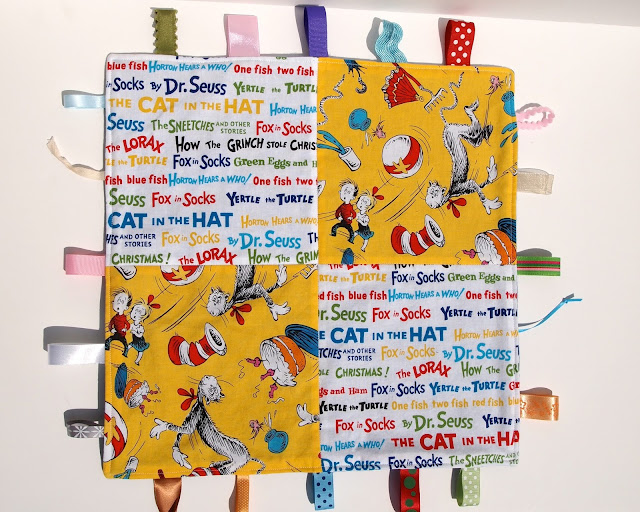 blue fish Horton Hears a Who! One fish two fish
in Socks By Dr. Seuss Yertle the Turtle
THE CAT IN THE HAT Horton Hears
Seuss The Sneetches AND OTHER STORIES Fox in Socks
The LORAX How The Grinch Stole Chris
le the Turtle Fox in Socks Green Eggs and H
fish blue fish Horton Hears a Who! One fish two
Seuss Fox in Socks Yertle the Turtle
CAT IN THE HAT Horton Hears a Who!
HES AND OTHER STORIES Fox in Socks By Dr. Seuss
CHRISTMAS! The LORAX How The Grin
Fox in Socks Green Eggs and
red fish blue fish Horton Hears a Who! One fish two
Yertle the Turtle
THE CAT IN THE HAT Horton Hears a Who!
etches AND OTHER STORIES Fox in Socks By Dr. Seuss
ole Christmas! The LORAX How The G
ggs and Ham Fox in Socks Yertle the Turtle Gr
Yertle the Turtle One fish two fish red fish blue
Dr. Seuss Fox in Socks Yertle
Horton Hears a Who! THE CAT IN THE HA
Dr. Seuss Fox in Socks The Sneetches AND OTHER STORIES